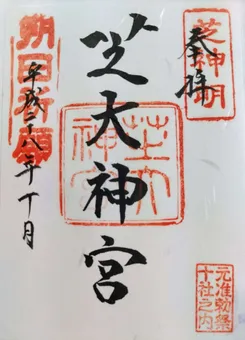 芝神明
奉拝
元准勅祭
十社之内
芝大神宮
芝大
神宮
朔日祈願
平成二八年十月